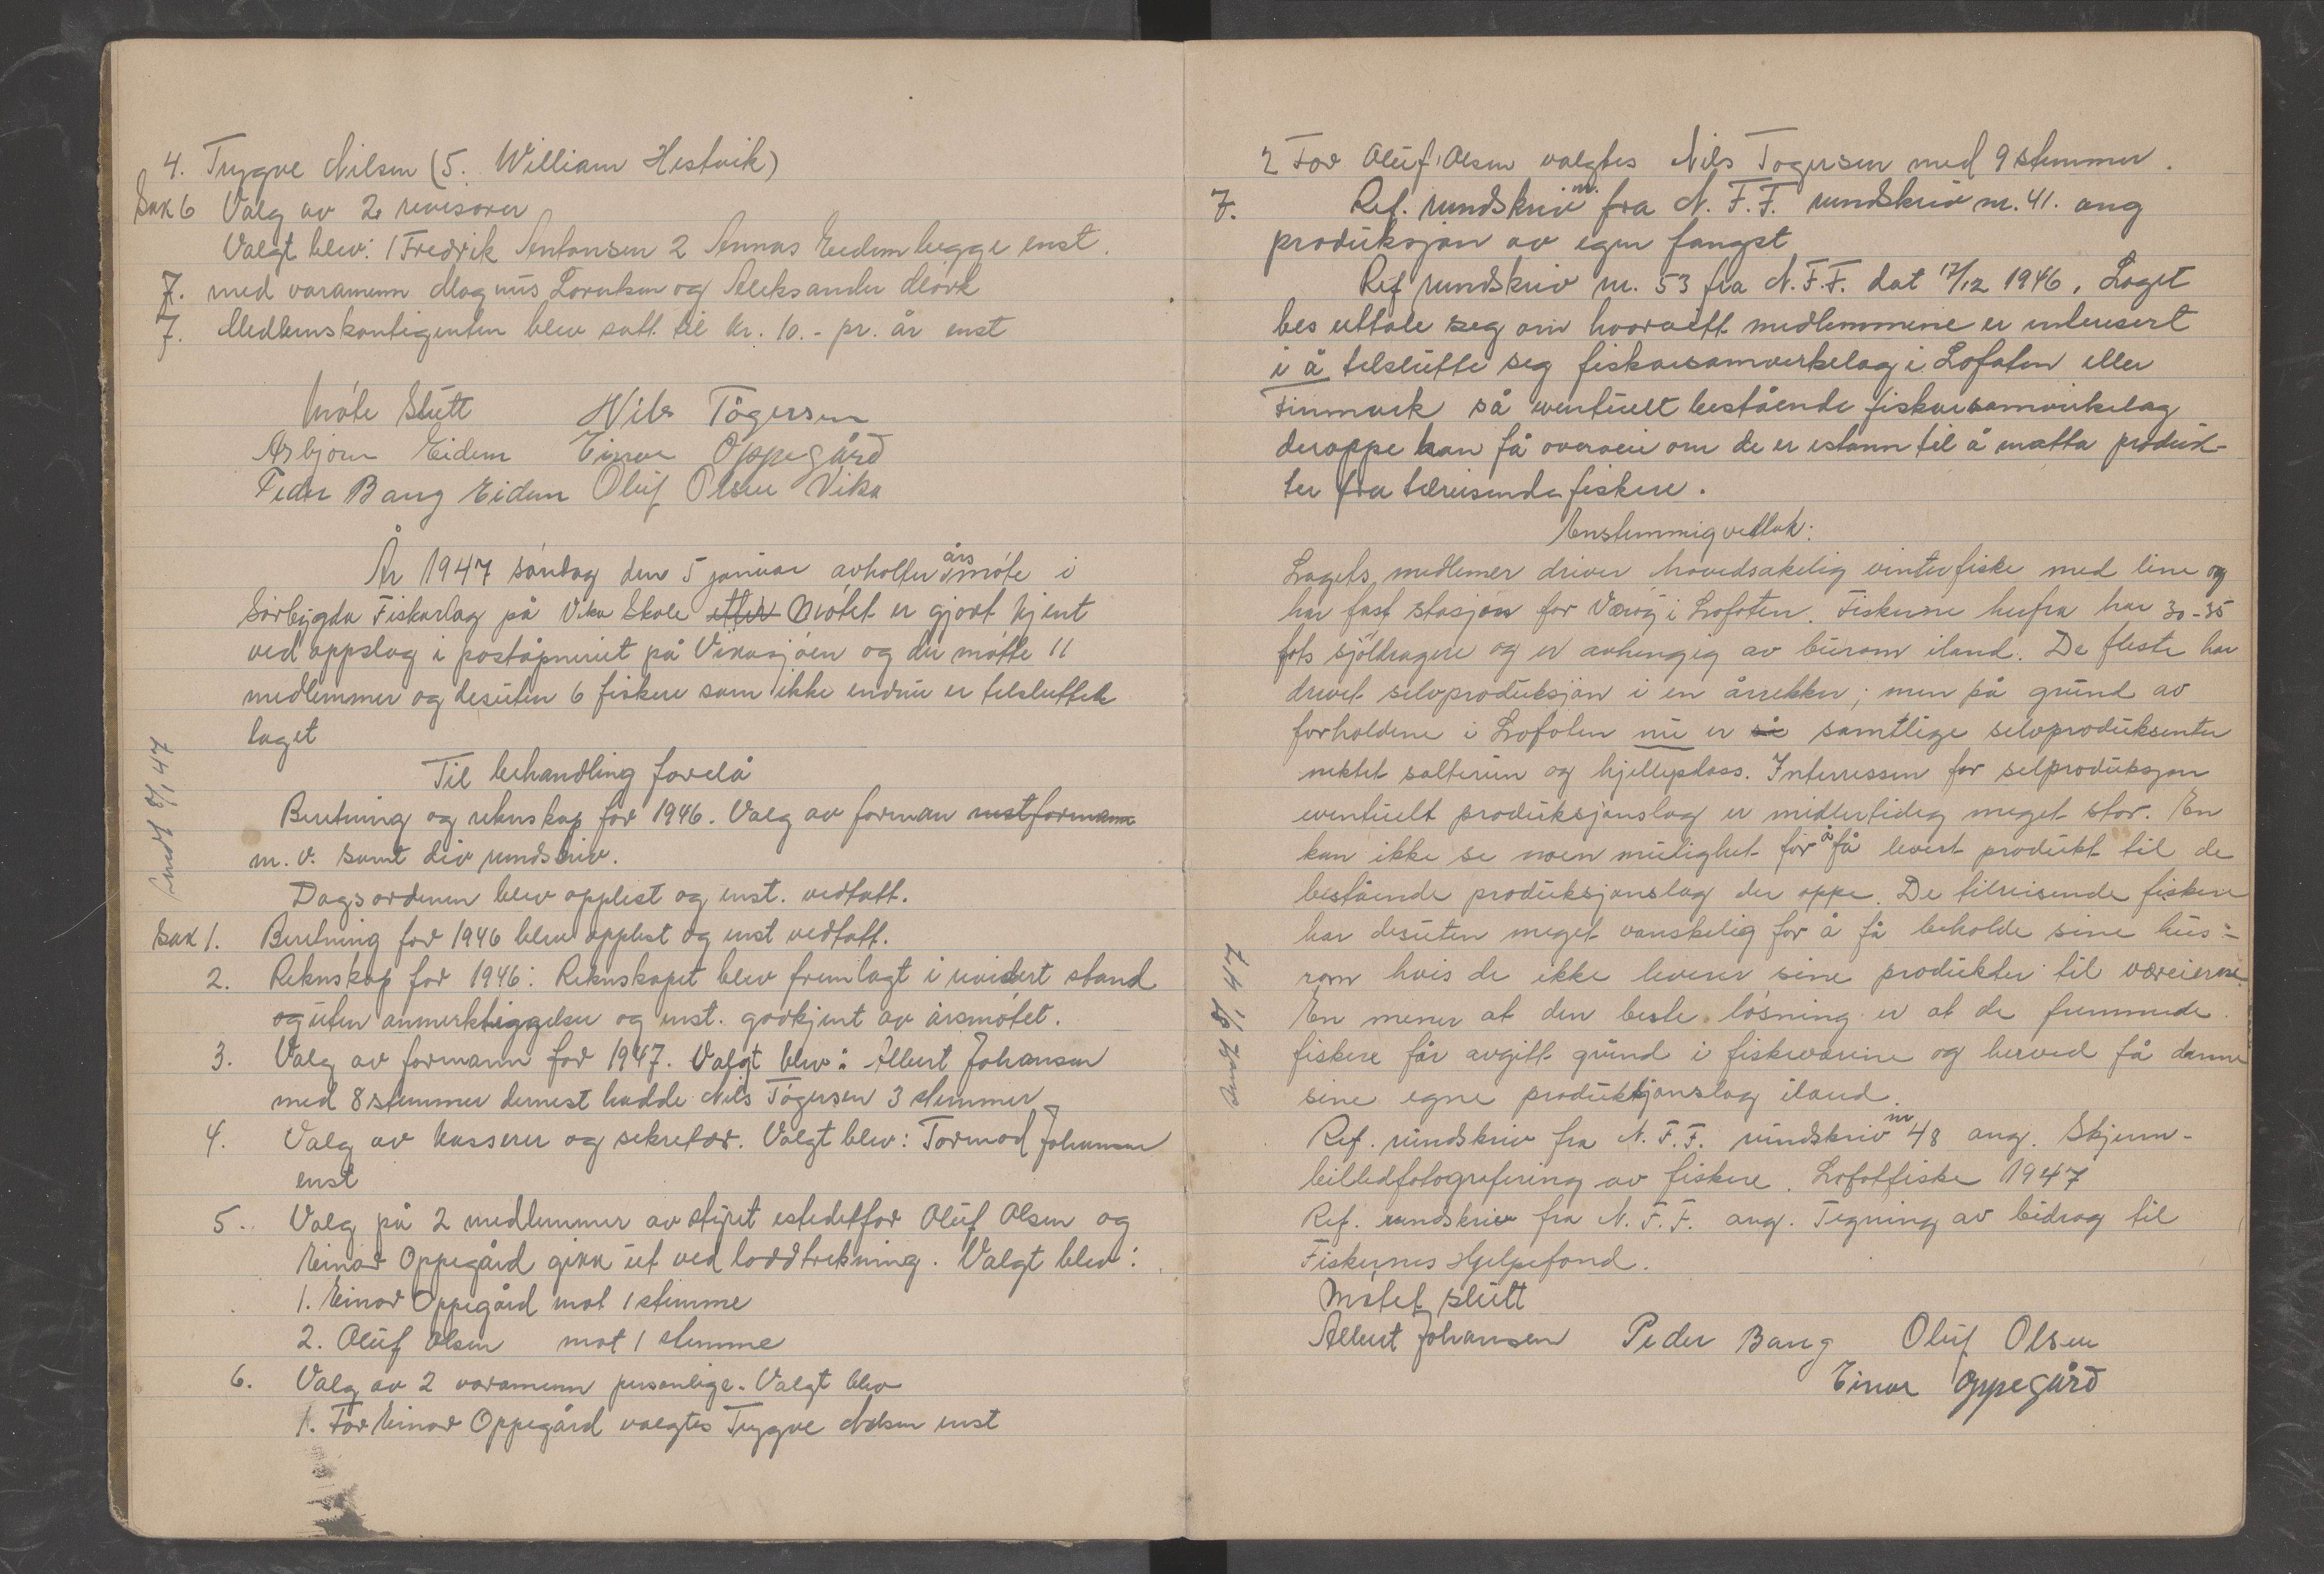 4. Trygve Nilsen (5. William Hestvik)
Sak 6 Valg av 2 revisorer
Valgt blev: 1 Fredrik Antonsen 2 Annas Eidem begge enst.
7. med varamenn Magnus Lorntsen og Aleksander
7. Medlemskontigenten blev satt til kr. 10.- pr. år enst
Möte Slutt Nils Tögersen
Asbjörn Eidem Einar Oppegård
Peder Bang Eidem Oluf Olsen Vika
År 1947 söndag den 5 januar avholter årsmöte i
Sörbygda Fiskarlag på Vika Skole etter Mötet er gjort kjent
ved oppslag i poståpneriet på Vikasjöen og der mötte 11
medlemmer og desuten 6 fiskere som ikke endnu er tilsluttet
laget
Til behandling forelå
Beretning og reknskap for 1946. Valg av forman nestformann
m. v. samt div rundskriv.
Dagsordenen blev opplest og enst. vedtatt.
Sak 1. Beretning for 1946 blev opplest og enst vedtatt.
2. Reknskap for 1946: Reknskapet blev fremlagt i revidert stand
og uten anmerktiggelser og enst. godkjent av årsmötet.
3. Valg av formann for 1947. Valgt blev: Albert Johansen
med 8 stemmer dernest hadde Nils Tögersen 3 stemmer
4. Valg av kasserer og sekretær. Valgt blev: Tormod Johansen
enst
5. Valg på 2 medlemmer av styret estedetfor Oluf Olsen og
Einar Oppegård gikk ut ved loddtrekning. Valgt blev:
1. Einar Oppegård mot 1 stemme
2. Oluf Olsen mot 1 stemme
6. Valg av 2 varamenn personlige. Valgt blev
1. For Einar Oppegård valgtes Trygve Nilsen enst
Sendt 8/1 47
2 For Oluf Olsen valgtes Nils Togersen med 9 stemmer.
7. Ref. rundskriv nr. fra N.F.F. rundskriv nr. 41. ang
produksjon av egen fangst
Ref rundskriv nr. 53 fra N.F.F. dat 17/12 1946. Laget
bes uttale seg om hvorvitt medlemmene er interesert
i å tilslutte seg fiskarsamverkelag i Lofoten eller
Finmark så eventuelt bestående fiskarsamvirkelag
deroppe kan få overveie om de er istann til å motta produk-
ter fra tilreisende fiskere.
Enstemmig vedtak:
Lagets medlemer driver hovedsakelig vinterfiske med line og
har fast stasjon for Værøy i Lofoten. Fiskerne herfra har 30-35
fots sjöldragere og er avhengig av burom iland. De fleste har
drevet selvproduksjon i en årrekke; men på grund av
forholdene i Lofoten nu er så samtlige selvproduksenter
nektet salterum og hjellepdass. Interressen for selproduksjon
eventuelt produksjonslag er midlertidig meget stor. En
kan ikke se noen mulighet for å få levert produkt til de
bestående produksjonslag der oppe. De tilreisende fiskere
har desuten meget vanskelig for å få beholde sine hus-
rom hvis de ikke leverer sine produkter til væreierne.
En mener at den beste lösning er at de fremmede
fiskere får avgitt grund i fiskeværene og herved få danne
sine egne produktsjonslag iland.
Ref. rundskriv fra N.F.F. rundskriv nr 48 ang. Skjerm-
billedfotografering av fiskere. Lofotfiske 1947
Ref. rundskriv fra N.F.F. ang. Tegning av bidrag til
Fiskernes Hjelpefond.
Mötet slutt
Albert Johansen Peder Bang Oluf Olsen
Einar Oppegård
Sendt 8/1 47